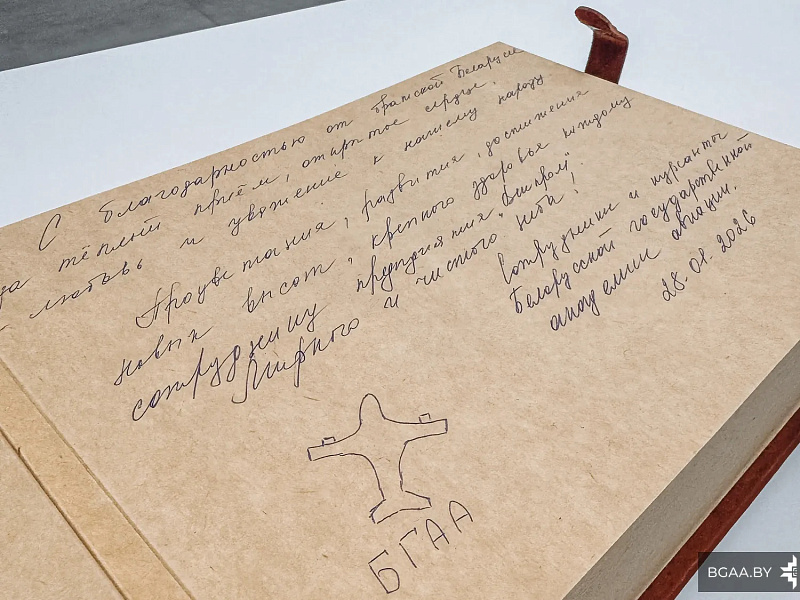 С благодарностью от братской Беларуси
за тёплый приём, открытое сердце,
любовь и уважение к нашему народу
Процветания, развития, достижения
новых высот, крепкого здоровья каждому
сотруднику предприятия
Мирного и чистого неба!
Сотрудники и курсанты
Белорусской государственной
академии авиации.
28.01.2026
БГАА
BGAA.BY